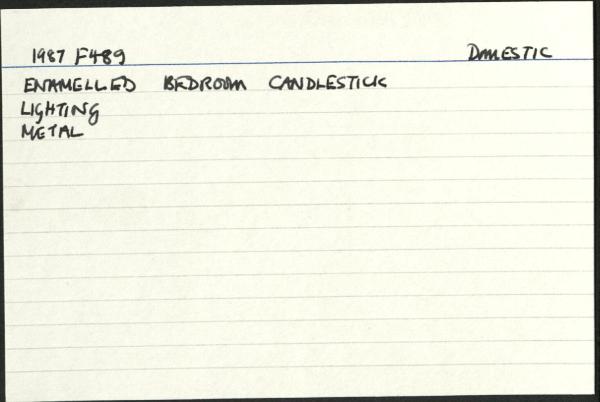 1987 F489 DOMESTIC
ENAMELLED BEDROOM CANDLESTICK
LIGHTING
METAL